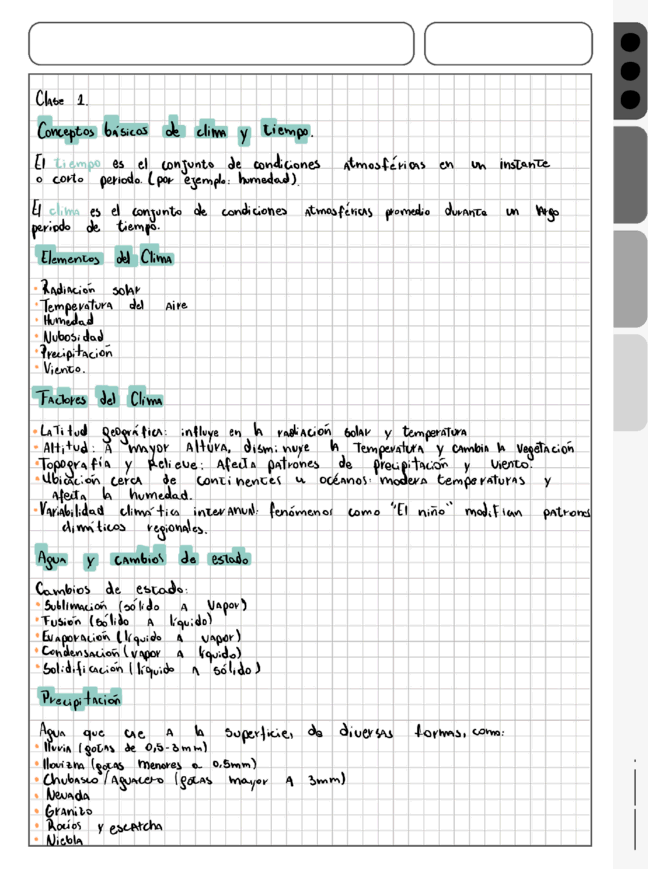 Clase 1.
Conceptos básicos de clima y tiempo.
El tiempo es el conjunto de condiciones atmosféricas en un instante
o corto periodo. (por ejemplo: humedad).
El clima es el conjunto de condiciones atmosféricas promedio durante un largo
periodo de tiempo.
Elementos del Clima
• Radiación solar
• Temperatura del aire
• Humedad
• Nubosidad
• Precipitación
• Viento.
Factores del Clima
• Latitud geográfica: influye en la radiación solar y temperatura
• Altitud: A mayor altura, disminuye la temperatura y cambia la vegetación
• Topografía y Relieve: Afecta patrones de precipitación y viento.
• Ubicación cerca de continentes u océanos: modera temperaturas y
afecta la humedad.
• Variabilidad climática interanual: fenómenos como "El niño" modifican patrones
climáticos regionales.
Agua y cambios de estado
Cambios de estado:
• Sublimación (sólido a vapor)
• Fusión (sólido a líquido)
• Evaporación (líquido a vapor)
• Condensación (vapor a líquido)
• Solidificación (líquido a sólido)
Precipitación
Agua que cae a la superficie, de diversas formas, como:
• lluvia (gotas de 0,5-3mm)
• llovizna (gotas menores a 0,5mm)
• Chubasco/Aguacero (gotas mayor a 3mm)
• Nevada
• Granizo
• Rocíos y escarcha
• Niebla